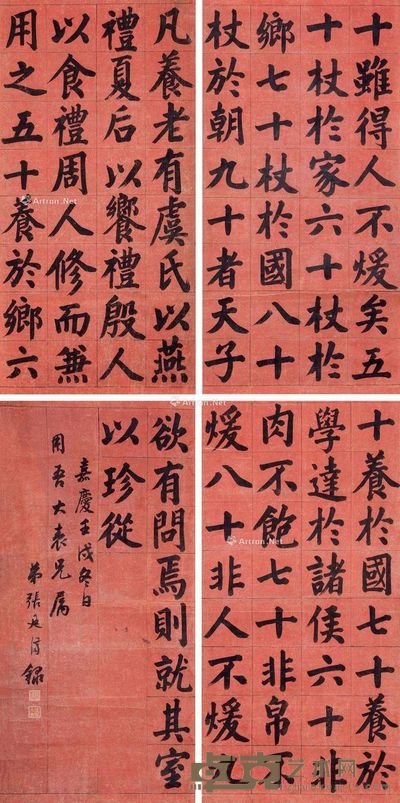 凡養老有虞氏以燕
禮夏后以饗禮殷人
以食禮周人修而兼
用之五十養於鄉六
十養於國七十養於
學達於諸侯六十非
肉不飽七十非帛不
煖八十非人不煖九
十雖得人不煖矣五
十杖於家六十杖於
鄉七十杖於國八十
杖於朝九十者天子
欲有問焉則就其室
以珍從
嘉慶壬戌冬日
用吾大表兄屬
弟張廷濟録
Artron.Net
Artron.Net
Artron.Net
Artron.Net
Artron.Net